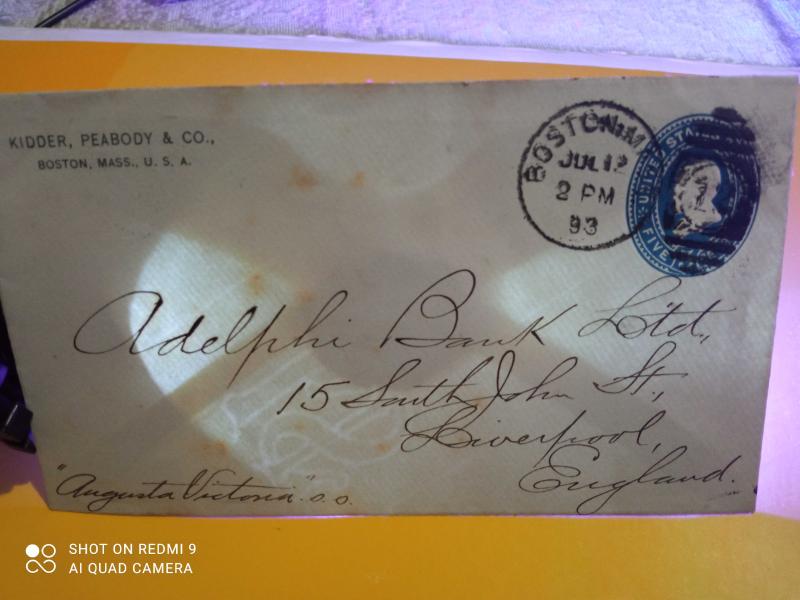 KIDDER, PEABODY & CO.,
BOSTON, MASS., U. S. A.
BOSTON, M
JUL 12
2 PM
93
UNITED STATES
FIVE
Adelphi Bank Ltd,
15 South John St.,
Liverpool,
England.
"Augusta Victoria" s.s.
SHOT ON REDMI 9
AI QUAD CAMERA